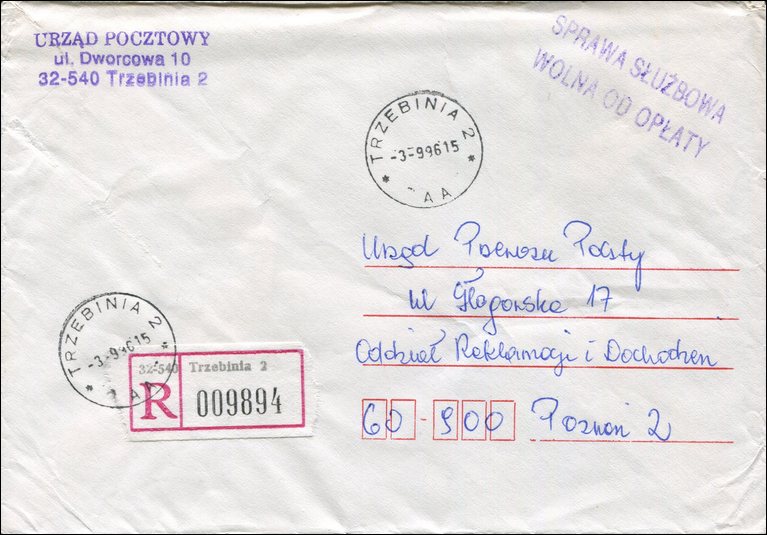 URZĄD POCZTOWY
ul. Dworcowa 10
32-540 Trzebinia 2
SPRAWA SŁUŻBOWA
WOLNA OD OPŁATY
TRZEBINIA 2
-3-99615
AA
Urząd Przewozu Poczty
ul Głogowska 17
Oddział Reklamacji i Dochodzeń
60-900 Poznań 2
TRZEBINIA 2
-3-99615
AA
32-540 Trzebinia 2
R 009894